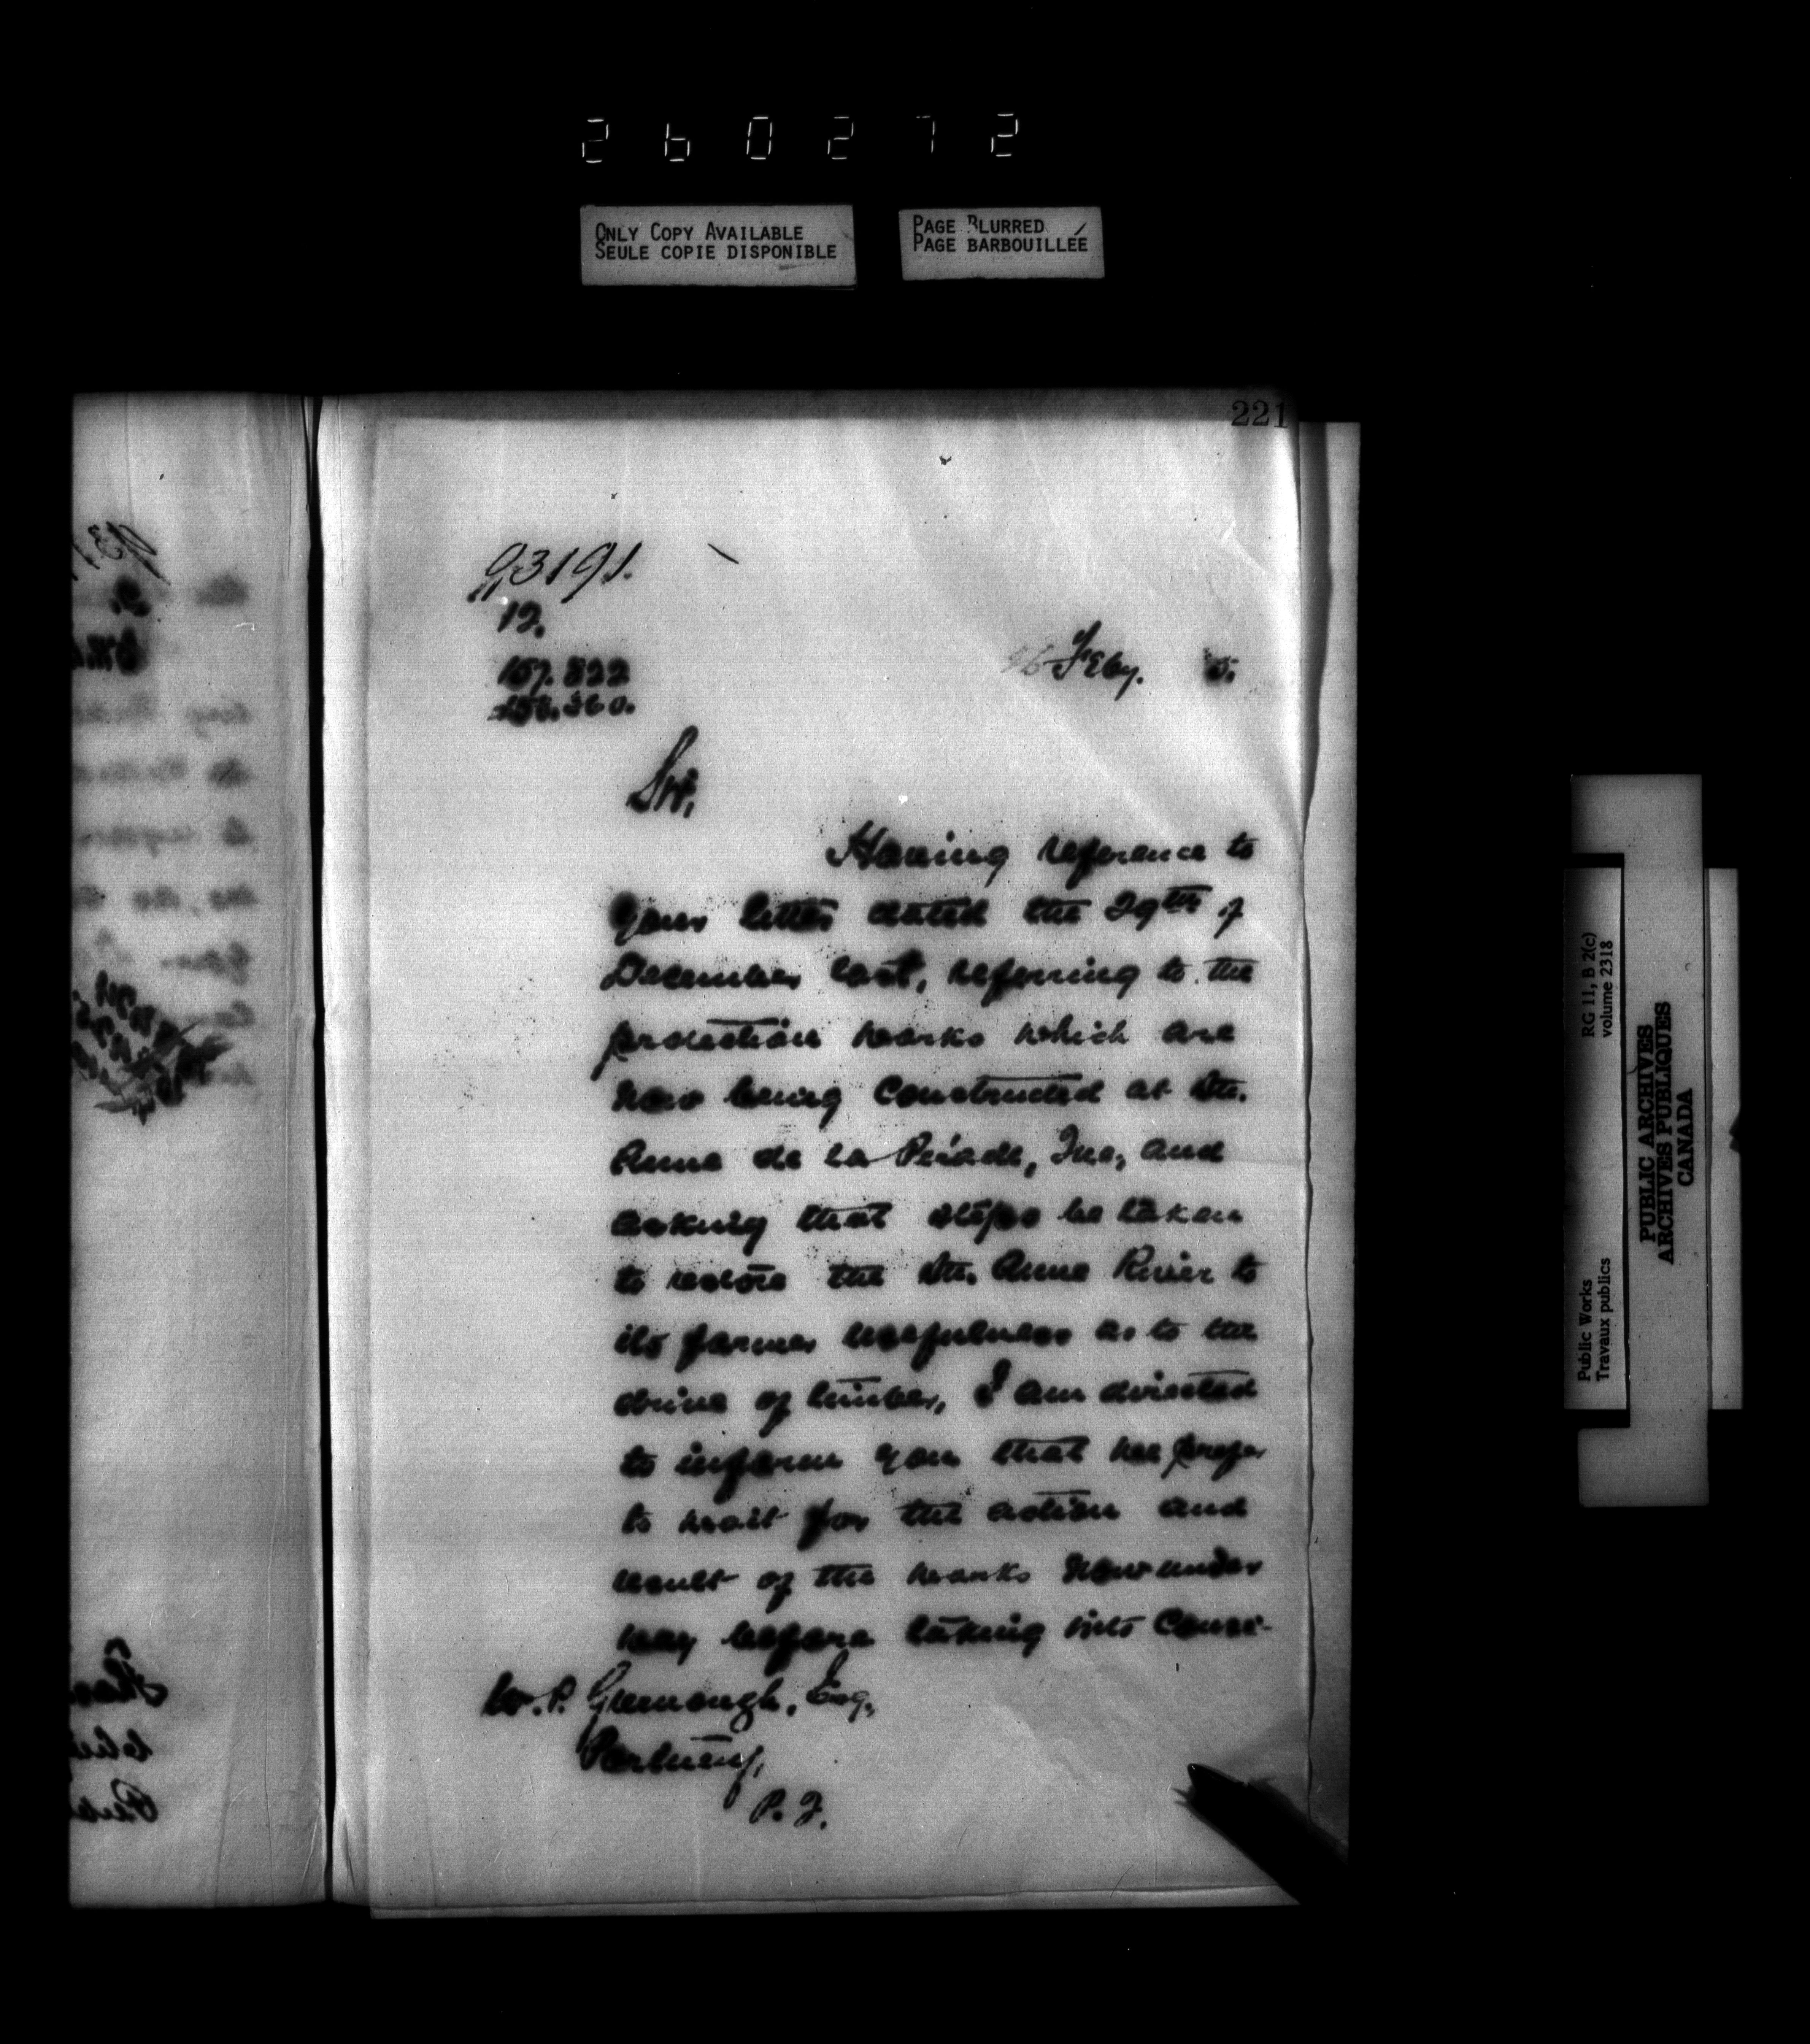 260272
ONLY COPY AVAILABLE
SEULE COPIE DISPONIBLE
PAGE BLURRED
PAGE BARBOUILLÉE
221
93191.
12.
157.822
158.360.
26 Feby. 5.
Sir,
Having reference to
your letter dated the 29th of
December last, referring to the
protection works which are
now being constructed at Ste.
Anne de la Pérade, Que, and
asking that steps be taken
to restore the Ste. Anne River to
its former usefulness as to the
drive of lumber, I am directed
to inform you that we prefer
to wait for the action and
result of the works now under
way before taking into consi-
W. P. Esq,
P. Q.
RG 11, B 2(c)
volume 2318
Public Works
Travaux publics
PUBLIC ARCHIVES
ARCHIVES PUBLIQUES
CANADA